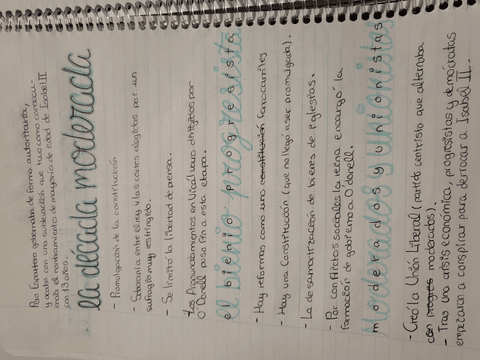 Pero Espartero gobernaba de forma autoritaria,
y acabó con una sublevación que tuvo como consecu-
encia el nombramiento de mayoría de edad de Isabel II
con 13 años.
la década moderada
- Promulgación de la constitución
- Soberanía entre el rey y las cortes elegidas por un
sufragio muy restringido.
- Se limitó la libertad de prensa.
Los Pronunciamientos en Vicálvaro dirigidos por
O'Donell puso fin a esta etapa.
el bienio progresista
- Hay reformas como una constitución ferrocarriles
- Hay una Constitución (que no llegó a ser promulgada).
- La desamortización de bienes de iglesias.
- Por conflictos sociales la reina encargó la
formación de gobierno a O'donell.
Moderados y Unionistas
moderados y unionistas
- Creó la Unión Liberal (partido centrista que alternaba
con progres moderados).
- Tras una crisis económica, progresistas y demócratas
empezaron a conspirar para derrocar a Isabel II.